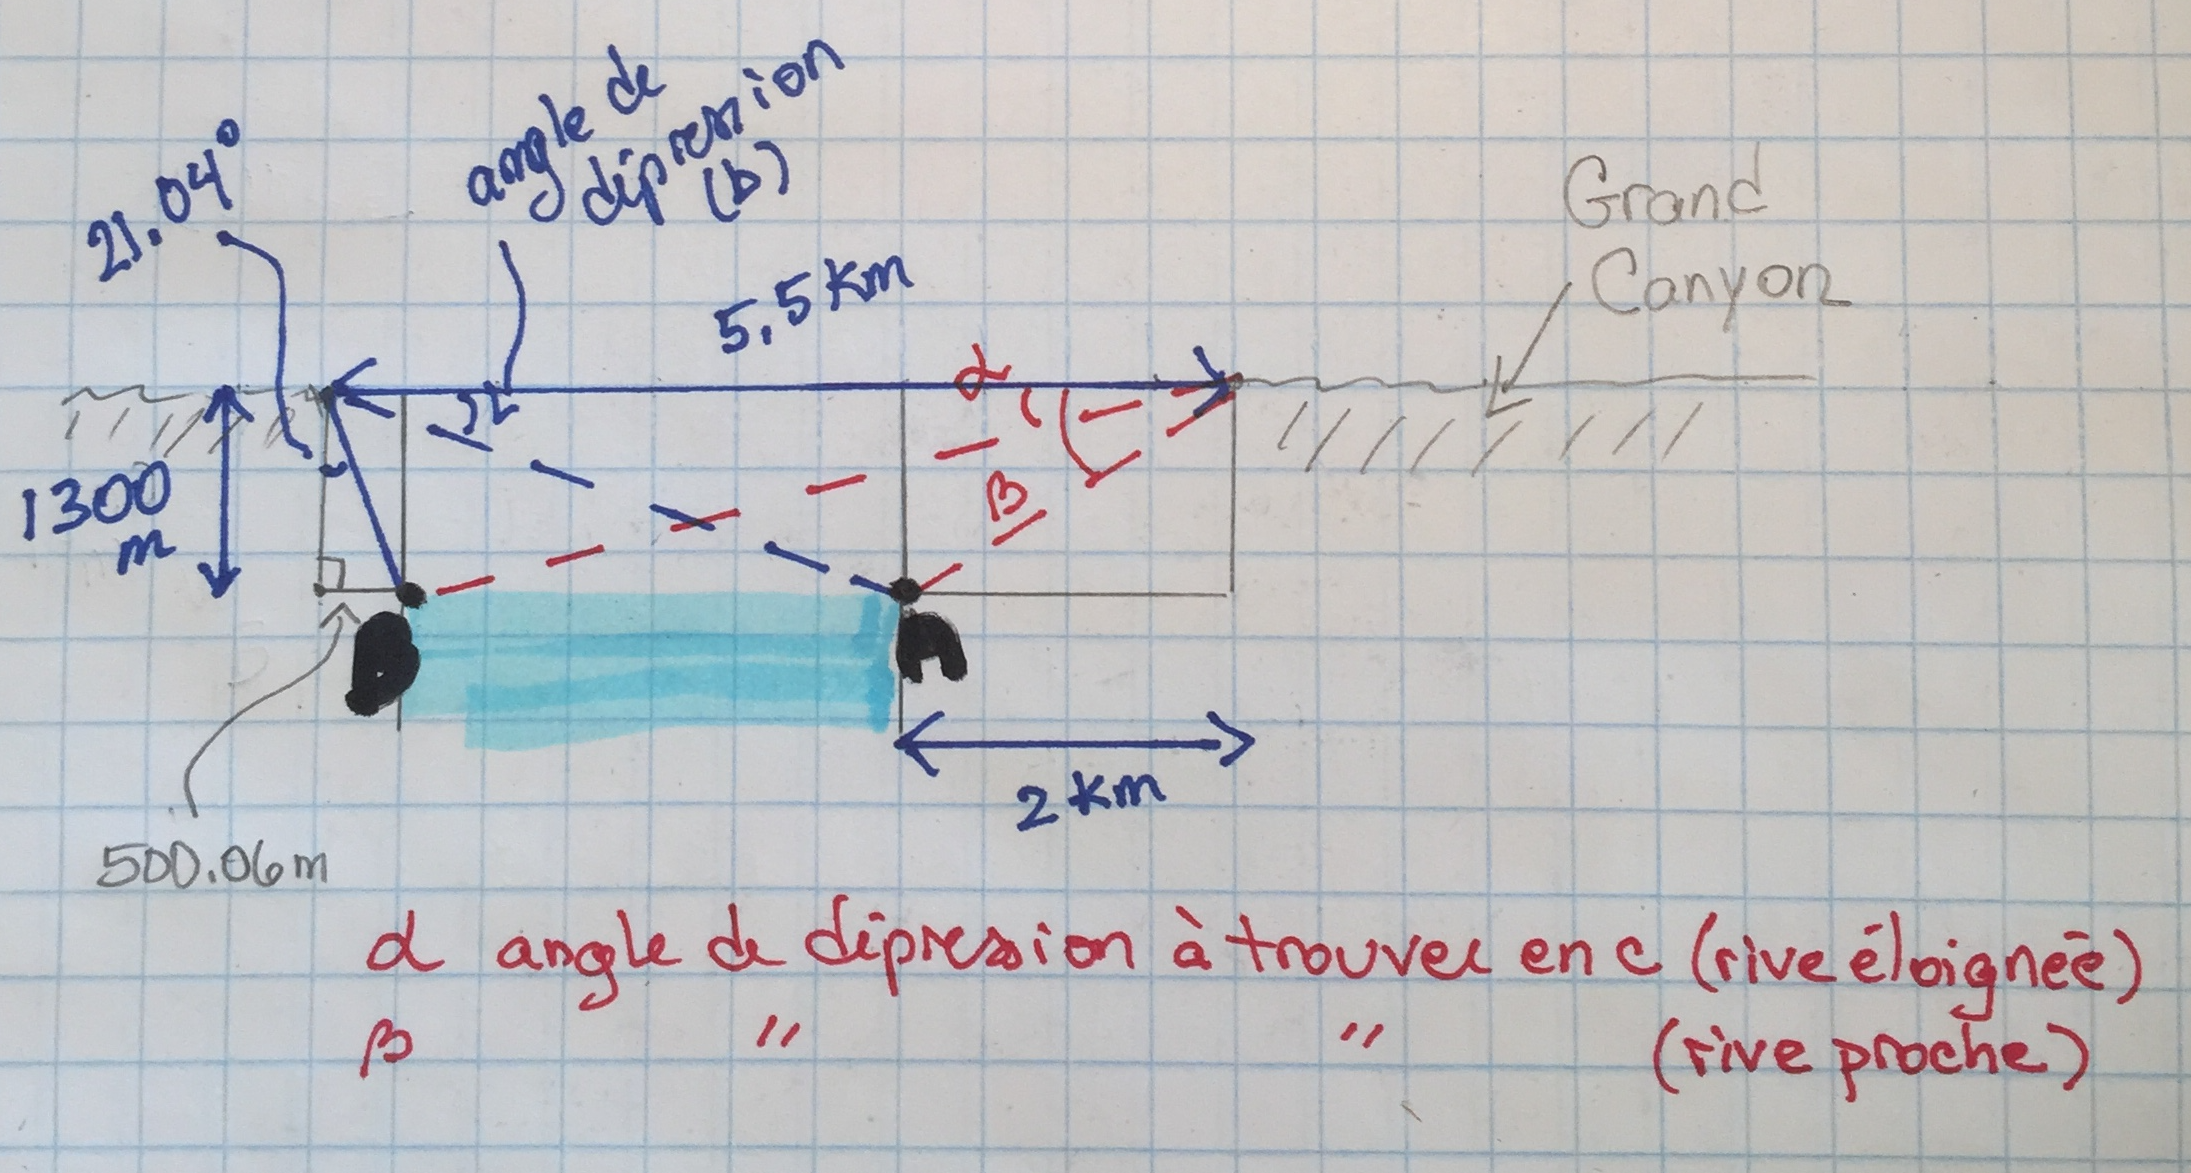 angle de
dépression
(b)
21.04°
Grand
Canyon
5.5 km
α
β
1300
m
B
A
2 km
500.06 m
α angle de dépression à trouver en c (rive éloignée)
β " " (rive proche)